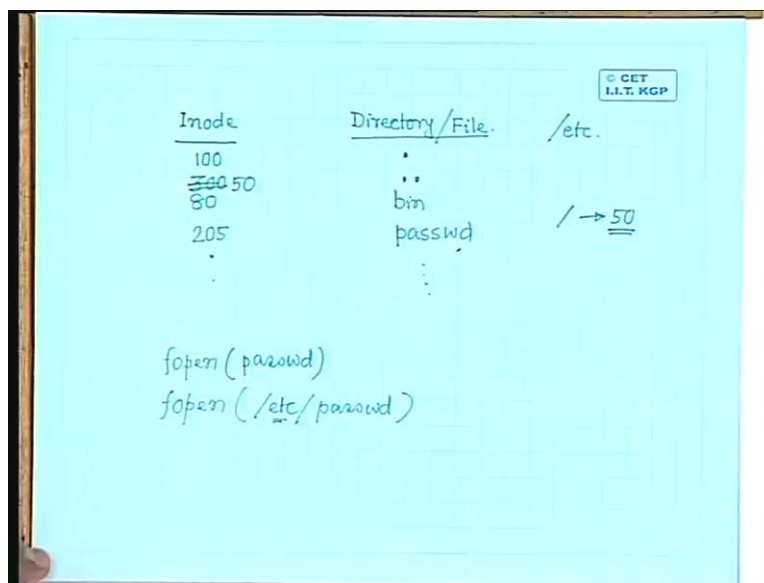 © CET
I.I.T. KGP
Inode Directory/File. /etc.
100 .
300 50 ..
80 bin
205 passwd / → 50
. :
. :
fopen (passwd)
fopen (/etc/passwd)